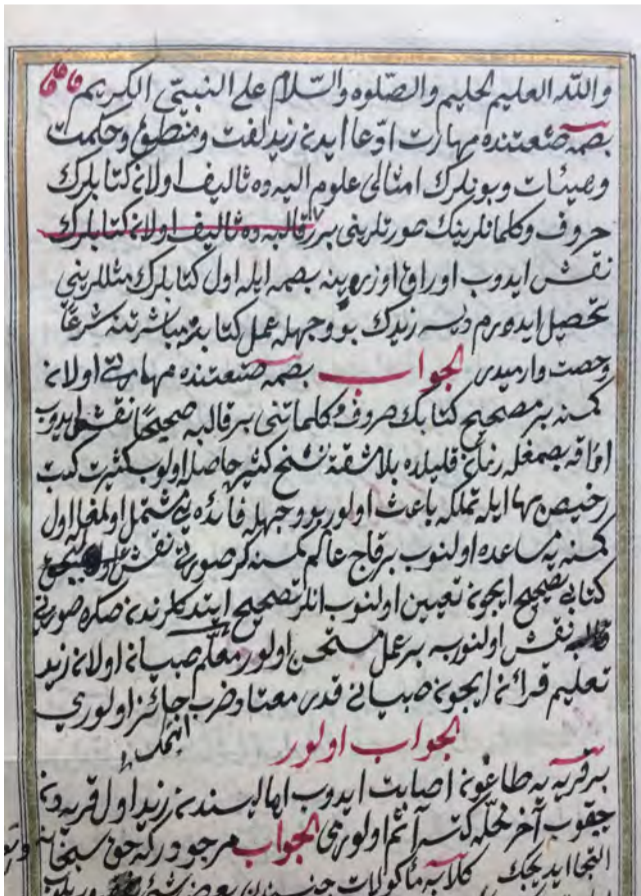 والله العليم الحليم والصلوه والسلام على النبى الكريم
بصمه صنعتنده مهارت ادّعا ايدن زيد لغت ومنطق وحكمت
وهيئات وبونلرك امثالى علوم اليه ده تاليف اولان كتابلرك
حروف وكلماتلرينك صورتلرينى بر قالبه ده تاليف اولان كتابلرك
نقش ايدوب اوراق اوزرينه بصمه ايله اول كتابلرك مثللرينى
تحصيل ايدهرم ديسه زيدك بو وجهله عمل كتابه مباشرتنه شرعًا
رخصت وارميدر الجواب بصمه صنعتنده مهارتى اولان
كمسنه بر مصحيح كتابك حروف وكلماتنى بر قالبه صحيحًا نقش ايدوب
اوراقه بصمغله زمان قليلده بلا مشقه نسخ كثيره حاصله اولوب كثرت كتب
رخيص بها ايله تملكه باعث اولور بو وجهله فائده يه مشتمل اولمغله اول
كمسنه يه مساعده اولنوب بر قاج عالم كمسنه لر صورتى نقش اوله جق
كتابى تصحيح ايچون تعيين اولنوب انلر تصحيح ايتدكلرندن صكره صورتى
قالبه نقش اولنورسه بر عمل مستحسن اولور معلّم صبيان اولان زيد
تعليم قرائن ايچون صبيانى قدر معتاد ضرب جائز اولورمى
الجواب اولور
بر قريه يه طاعون اصابت ايدوب اهاليسندن زيد اول قريه دن
چقوب آخر محله كتسه آثم اولورمى الجواب مرجودركه حق سبحانه
التجا ايديجك كلابه مأكولات جنسندن بعض